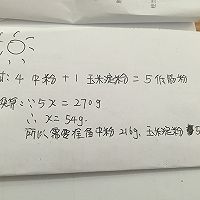 4 中粉 + 1 玉米淀粉 = 5 低筋粉
∵ 5x = 270g
∴ x = 54g.
所以需要 中粉 216g、玉米淀粉 5